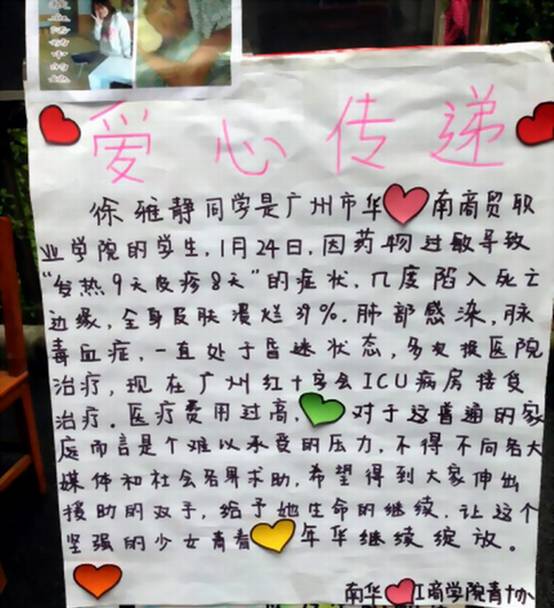 爱心传递
徐雅静同学是广州市华南商贸职
业学院的学生,1月24日,因药物过敏导致
“发热9天皮疹8天”的症状,几度陷入死亡
边缘,全身皮肤溃烂39%.肺部感染,脓
毒血症,一直处于昏迷状态,多次换医院
治疗,现在广州红十字会ICU病房接受
治疗.医疗费用过高,对于这普通的家
庭而言是个难以承受的压力,不得不向各大
媒体和社会各界求助,希望得到大家伸出
援助的双手,给予她生命的继续,让这个
坚强的少女青春年华继续绽放。
南华工商学院青协